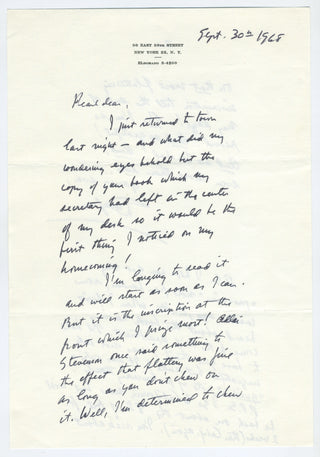 Sept. 30th 1968
NEW YORK 22, N. Y.
ELDORADO
Pearl dear,
I just returned to town
last night – and what did my
wondering eyes behold but the
copy of your book which my
secretary had left in the center
of my desk so it would be the
first thing I noticed on my
homecoming!
I'm longing to read it
and will start as soon as I can.
But it is the inscription at the
front which I prize most! Adlai
Stevenson once said something to
the effect that flattery was fine
as long as you don't chew on
it. Well, I'm determined to chew